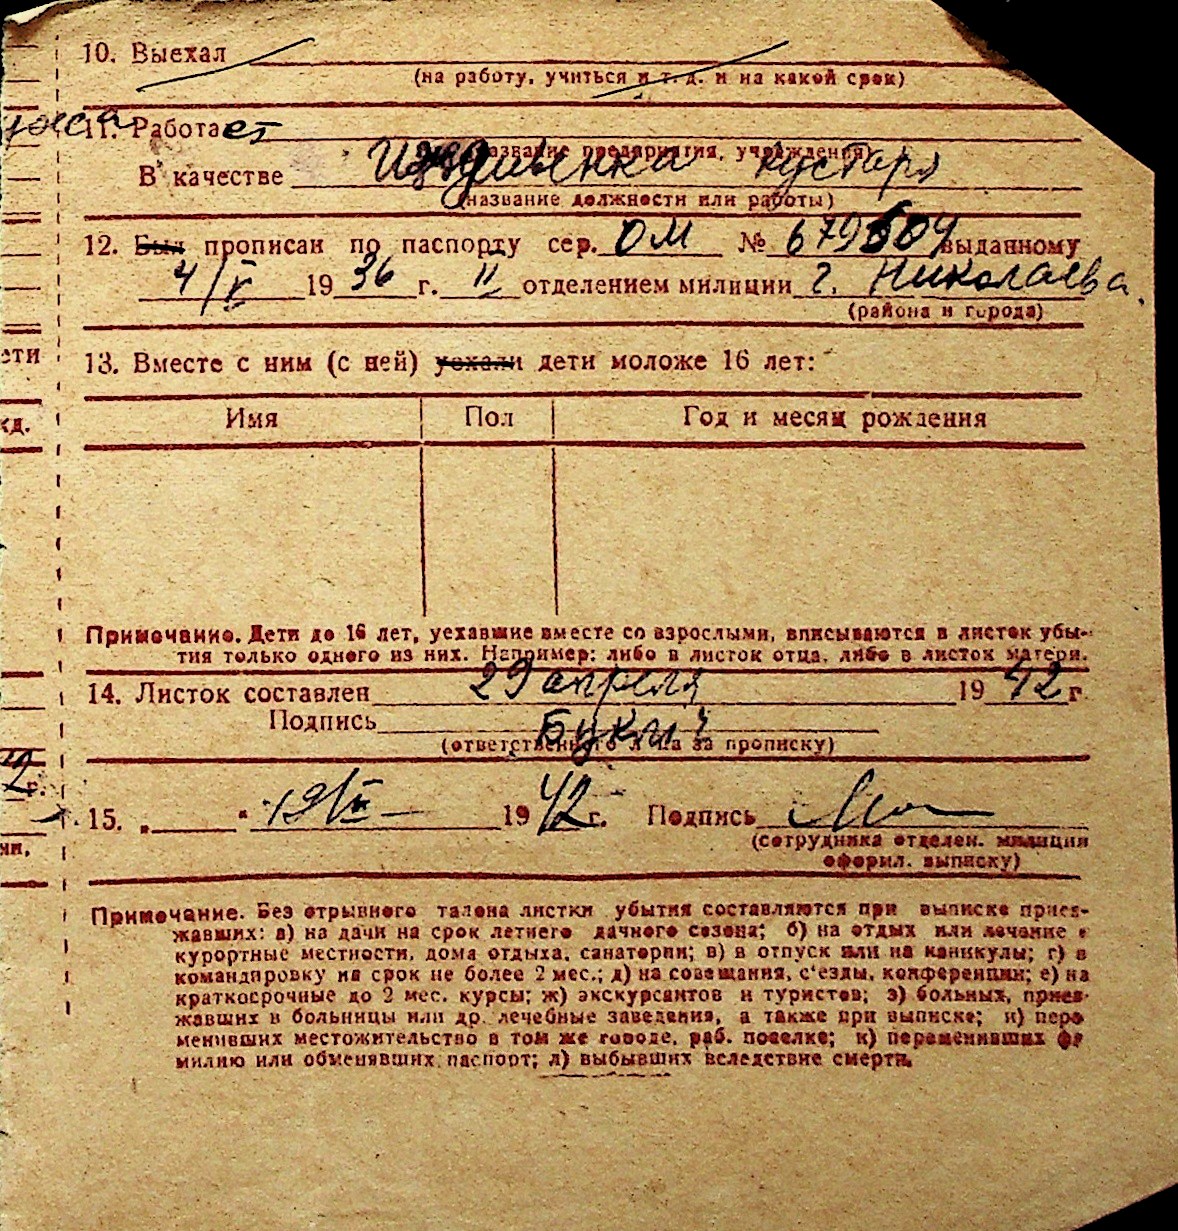 10. Выехал
(на работу, учиться и т. д. и на какой срок)
11. Работает
(название предприятия, учреждения)
В качестве Иждивенка кустаря
(название должности или работы)
12. Был прописан по паспорту сер. ОМ № 679504 выданному
4/V 1936 г. II отделением милиции г. Николаева.
(района и города)
13. Вместе с ним (с ней) уехали дети моложе 16 лет:
Имя Пол Год и месяц рождения
Примечание. Дети до 16 лет, уехавшие вместе со взрослыми, вписываются в листок убы-
тия только одного из них. Например: либо в листок отца, либо в листок матери.
14. Листок составлен 29 апреля 1942 г.
Подпись
(ответственного лица за прописку)
15. „ “ 1942 г. Подпись
(сотрудника отделен. милиции
оформл. выписку)
Примечание. Без отрывного талона листки убытия составляются при выписке приез-
жавших: а) на дачи на срок летнего дачного сезона; б) на отдых или лечение в
курортные местности, дома отдыха, санатории; в) в отпуск или на каникулы; г) в
командировку на срок не более 2 мес.; д) на совещания, с'езды, конференции; е) на
краткосрочные до 2 мес. курсы; ж) экскурсантов и туристов; з) больных, приез-
жавших в больницы или др. лечебные заведения, а также при выписке; и) пере
менивших местожительство в том же городе, раб. поселке; к) переменивших фа
милию или обменявших паспорт; л) выбывших вследствие смерти.